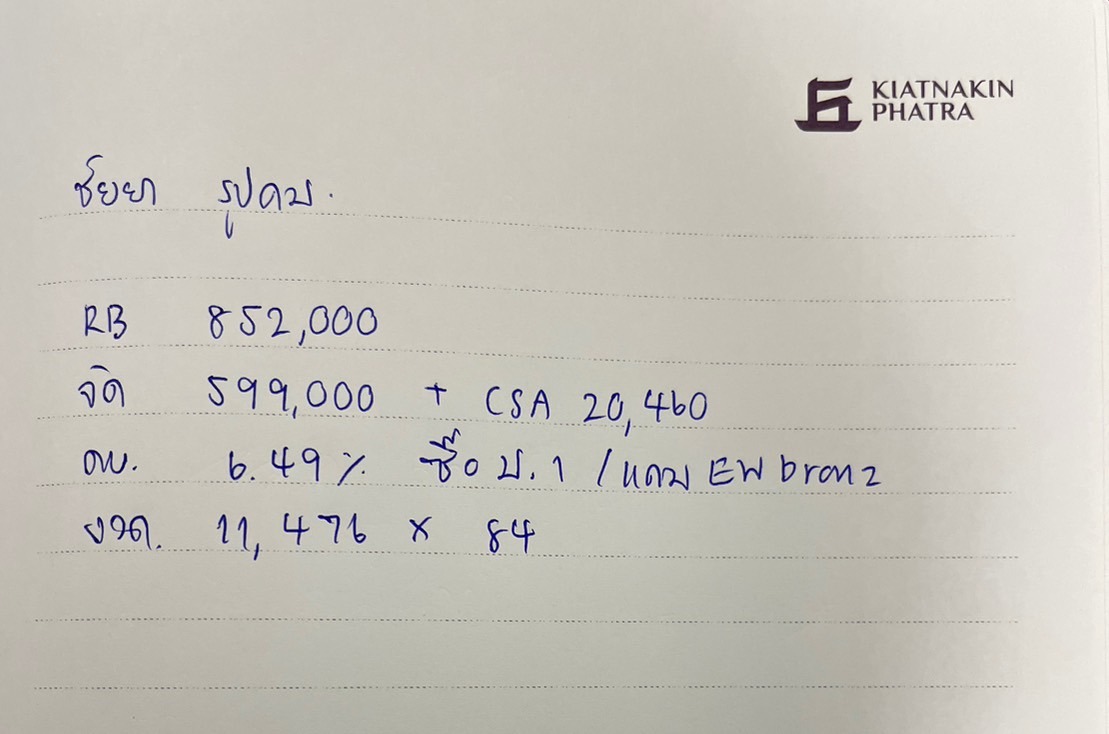 KIATNAKIN
PHATRA
ชัยยา รูปคม.
RB 852,000
จัด 599,000 + CSA 20,460
ดบ. 6.49% ซื้อ ป.1 / แถม EW bronz
งวด. 11,476 x 84